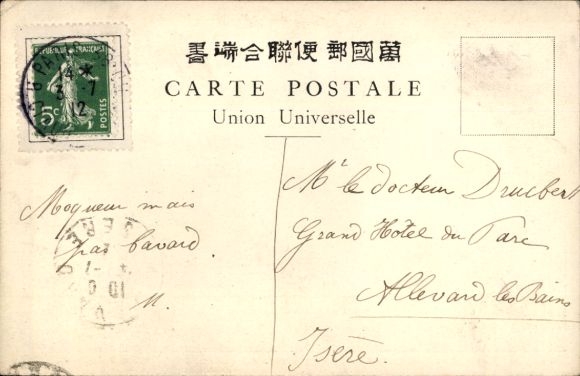 萬國郵便聯合端書
CARTE POSTALE
Union Universelle
REPUBLIQUE FRANÇAISE
5c
POSTES
3 · 7
12
Mr le docteur
Grand Hôtel du Parc
Allevard les Bains
Isère.
Moqueur mais
pas bavard
M.